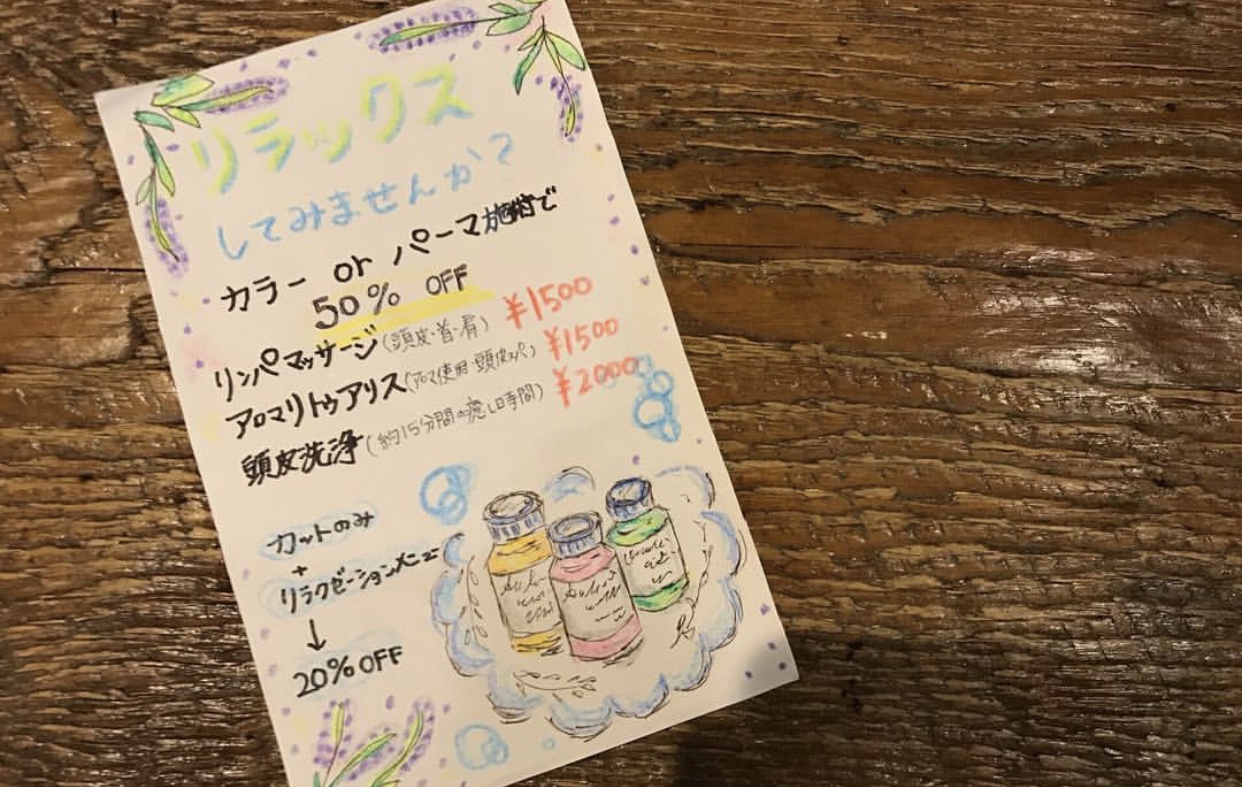 リラックス
してみませんか?
カラー or パーマ施術で
50% OFF
リンパマッサージ(頭皮・首・肩) ¥1500
アロマリトゥアリス(アロマ使用・頭皮スパ) ¥1500
頭皮洗浄(約15分間の癒し時間) ¥2000
カットのみ
+
リラクゼーションメニュー
↓
20%OFF